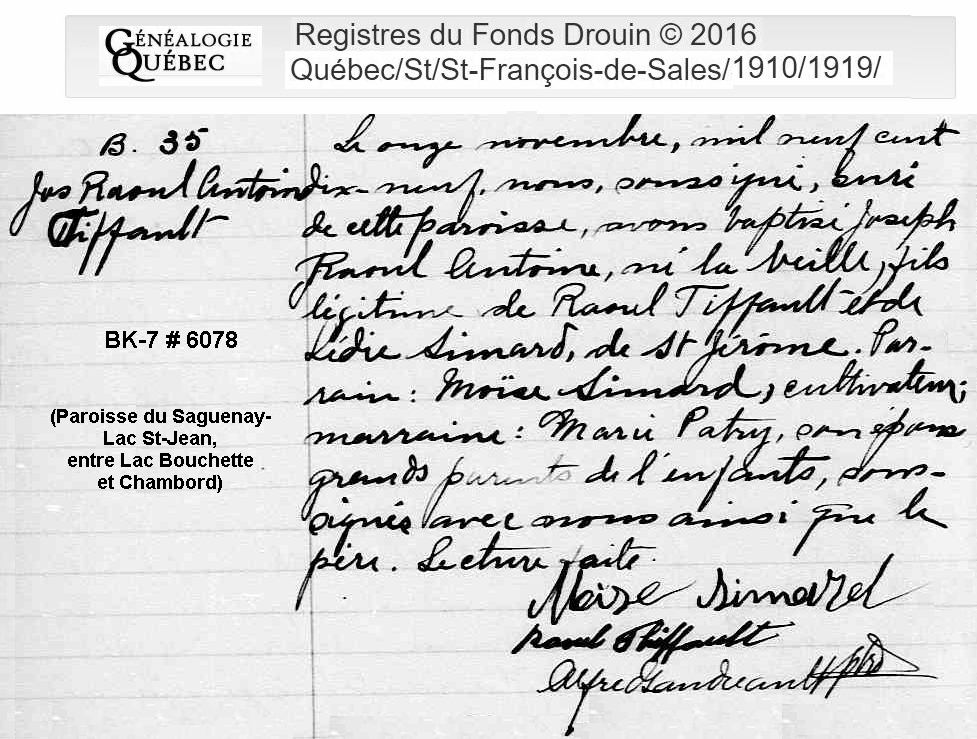 GÉNÉALOGIE
QUÉBEC
Registres du Fonds Drouin © 2016
Québec/St/St-François-de-Sales/1910/1919/
B. 35
Jos Raoul Antoine
Tiffault
BK-7 # 6078
(Paroisse du Saguenay-
Lac St-Jean,
entre Lac Bouchette
et Chambord)
Le onze novembre, mil neuf cent
dix-neuf, nous, soussigné, curé
de cette paroisse, avons baptisé Joseph
Raoul Antoine, né la veille, fils
légitime de Raoul Tiffault et de
Lédie Simard, de St Jérôme. Par-
rain: Moïse Simard, cultivateur;
marraine: Marie Patry, son épouse
grands parents de l'enfants, sous-
signés avec nous ainsi que le
père. Lecture faite.
Moïse Simard
Raoul Thiffault
Alfred Gaudreault ptre